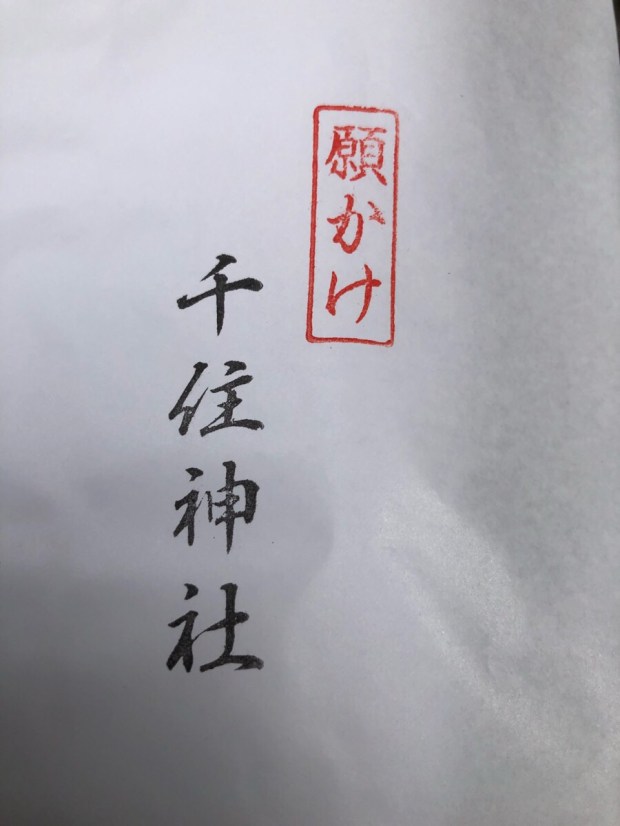 願かけ
千住神社